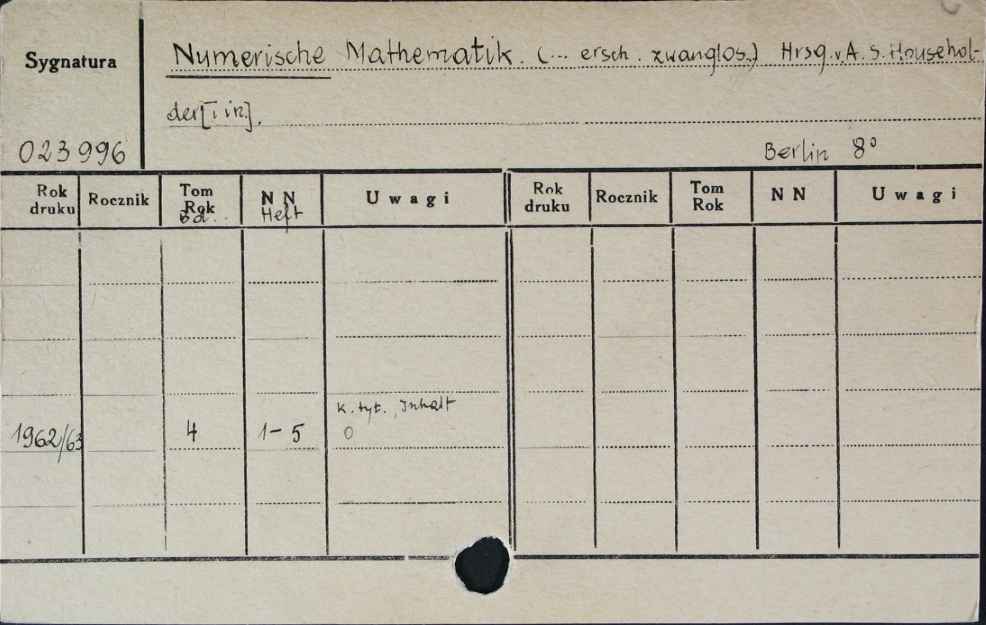 Sygnatura
Numerische Mathematik. (... ersch. zwanglos.) Hrsg. v. A. S. Househol-
der [i in].
023996
Berlin 8°
Rok druku Rocznik Tom Rok Bd.. N N Heft Uwagi Rok druku Rocznik Tom Rok N N Uwagi
k. tyt., Inhalt
1962/63 4 1-5 0